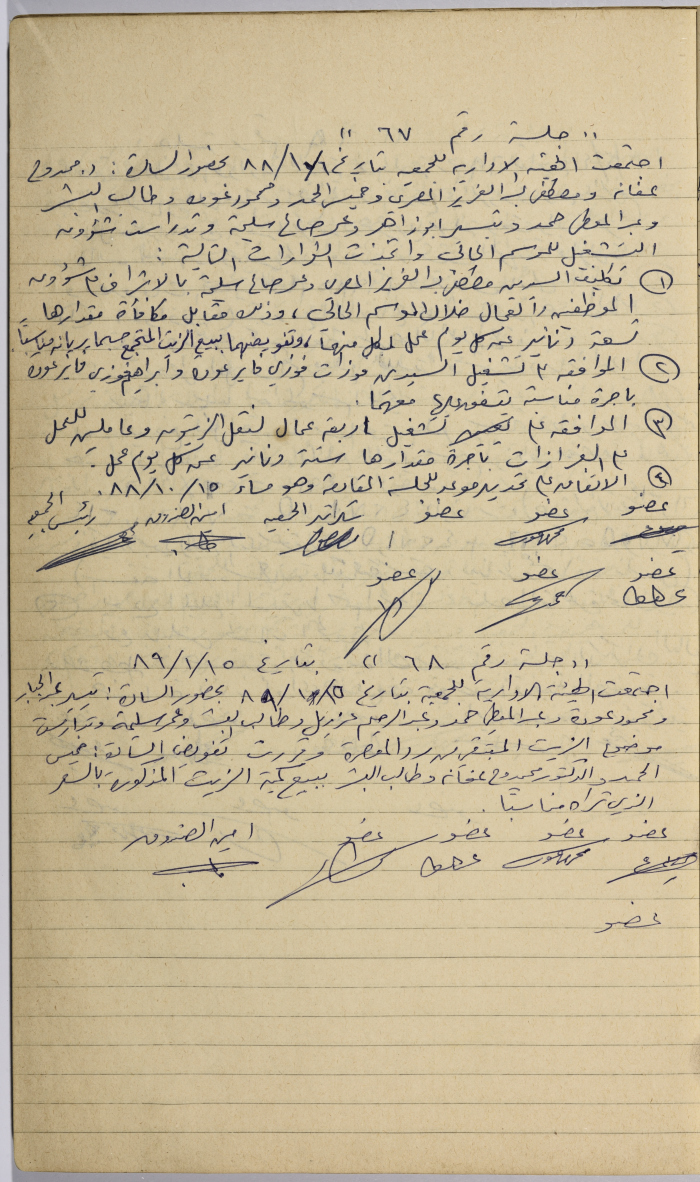 " جلسة رقم ٦٧ "
اجتمعت الهيئة الادارية للجمعية بتاريخ ٨٨/١٠/٦ بحضور السادة : د. ممدوح
عفانه ومصطفى عبد العزيز المصري وخميس الحمد ومحمود عوده وطالب البشر
وعبد المعطي حمد وتيسير ابو زاهر وعمر صالح سليمة وتدارست شؤون
التشغيل للموسم الحالي واتخذت القرارات التالية :
١ تكليف السيدين مصطفى عبد العزيز المصري وعمر صالح سليمة بالاشراف على شؤون
الموظفين والعمال خلال الموسم الحالي ، وذلك مقابل مكافأة مقدارها
تسعة دنانير عن كل يوم عمل لكل منهما ، وتفويضهما ببيع الزيت المتجمع حسبما يريانه مناسباً
٢ الموافقة على تشغيل السيدين فوزات فوزي فايز عوده وابراهيم فوزي فايز عوده
باجرة مناسبة يتفق عليها معهما .
٣ الموافقة على تشغيل اربعة عمال لنقل الزيتون وعاملين للعمل
على الفرازات باجرة مقدارها ستة دنانير عن كل يوم عمل .
٤ الاتفاق على تحديد موعد للجلسة القادمة وهو مساء ٨٨/١٠/١٥ .
عضو عضو عضو سكرتير الجمعية امين الصندوق رئيس الجمعية
عضو عضو عضو
" جلسة رقم ٦٨ " بتاريخ ٨٩/١/١٥
اجتمعت الهيئة الادارية للجمعية بتاريخ بحضور السادة : تيسير عبد الجبار
ومحمود عودة وعبد المعطي حمد وعبد الرحيم وطالب البشر وعمر سليمة وتدارست
موضوع الزيت المتبقي من رد المعصرة وقررت تفويض السادة : خميس
الحمد والدكتور ممدوح عفانه وطالب البشر ببيع كمية الزيت المذكورة بالسعر
الذي تراه مناسباً .
عضو عضو عضو عضو امين الصندوق
عضو